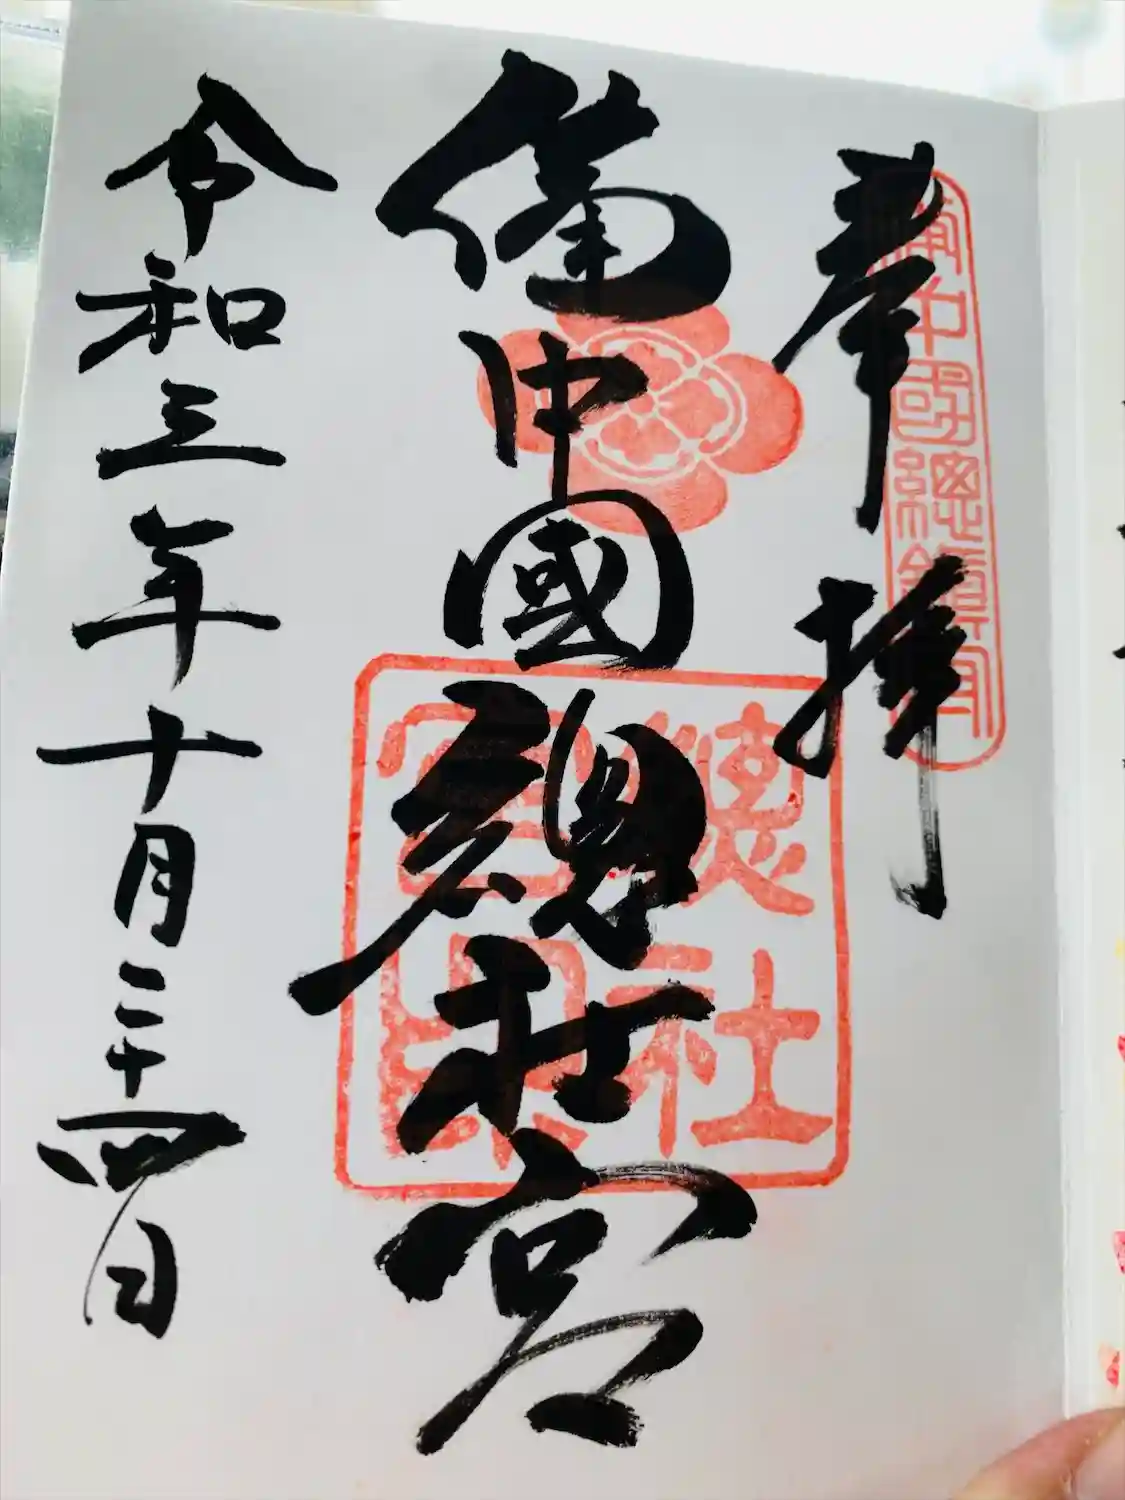 奉拝
備中國總鎮守
備中國總社宮
總社
宮印
令和三年十月二十四日